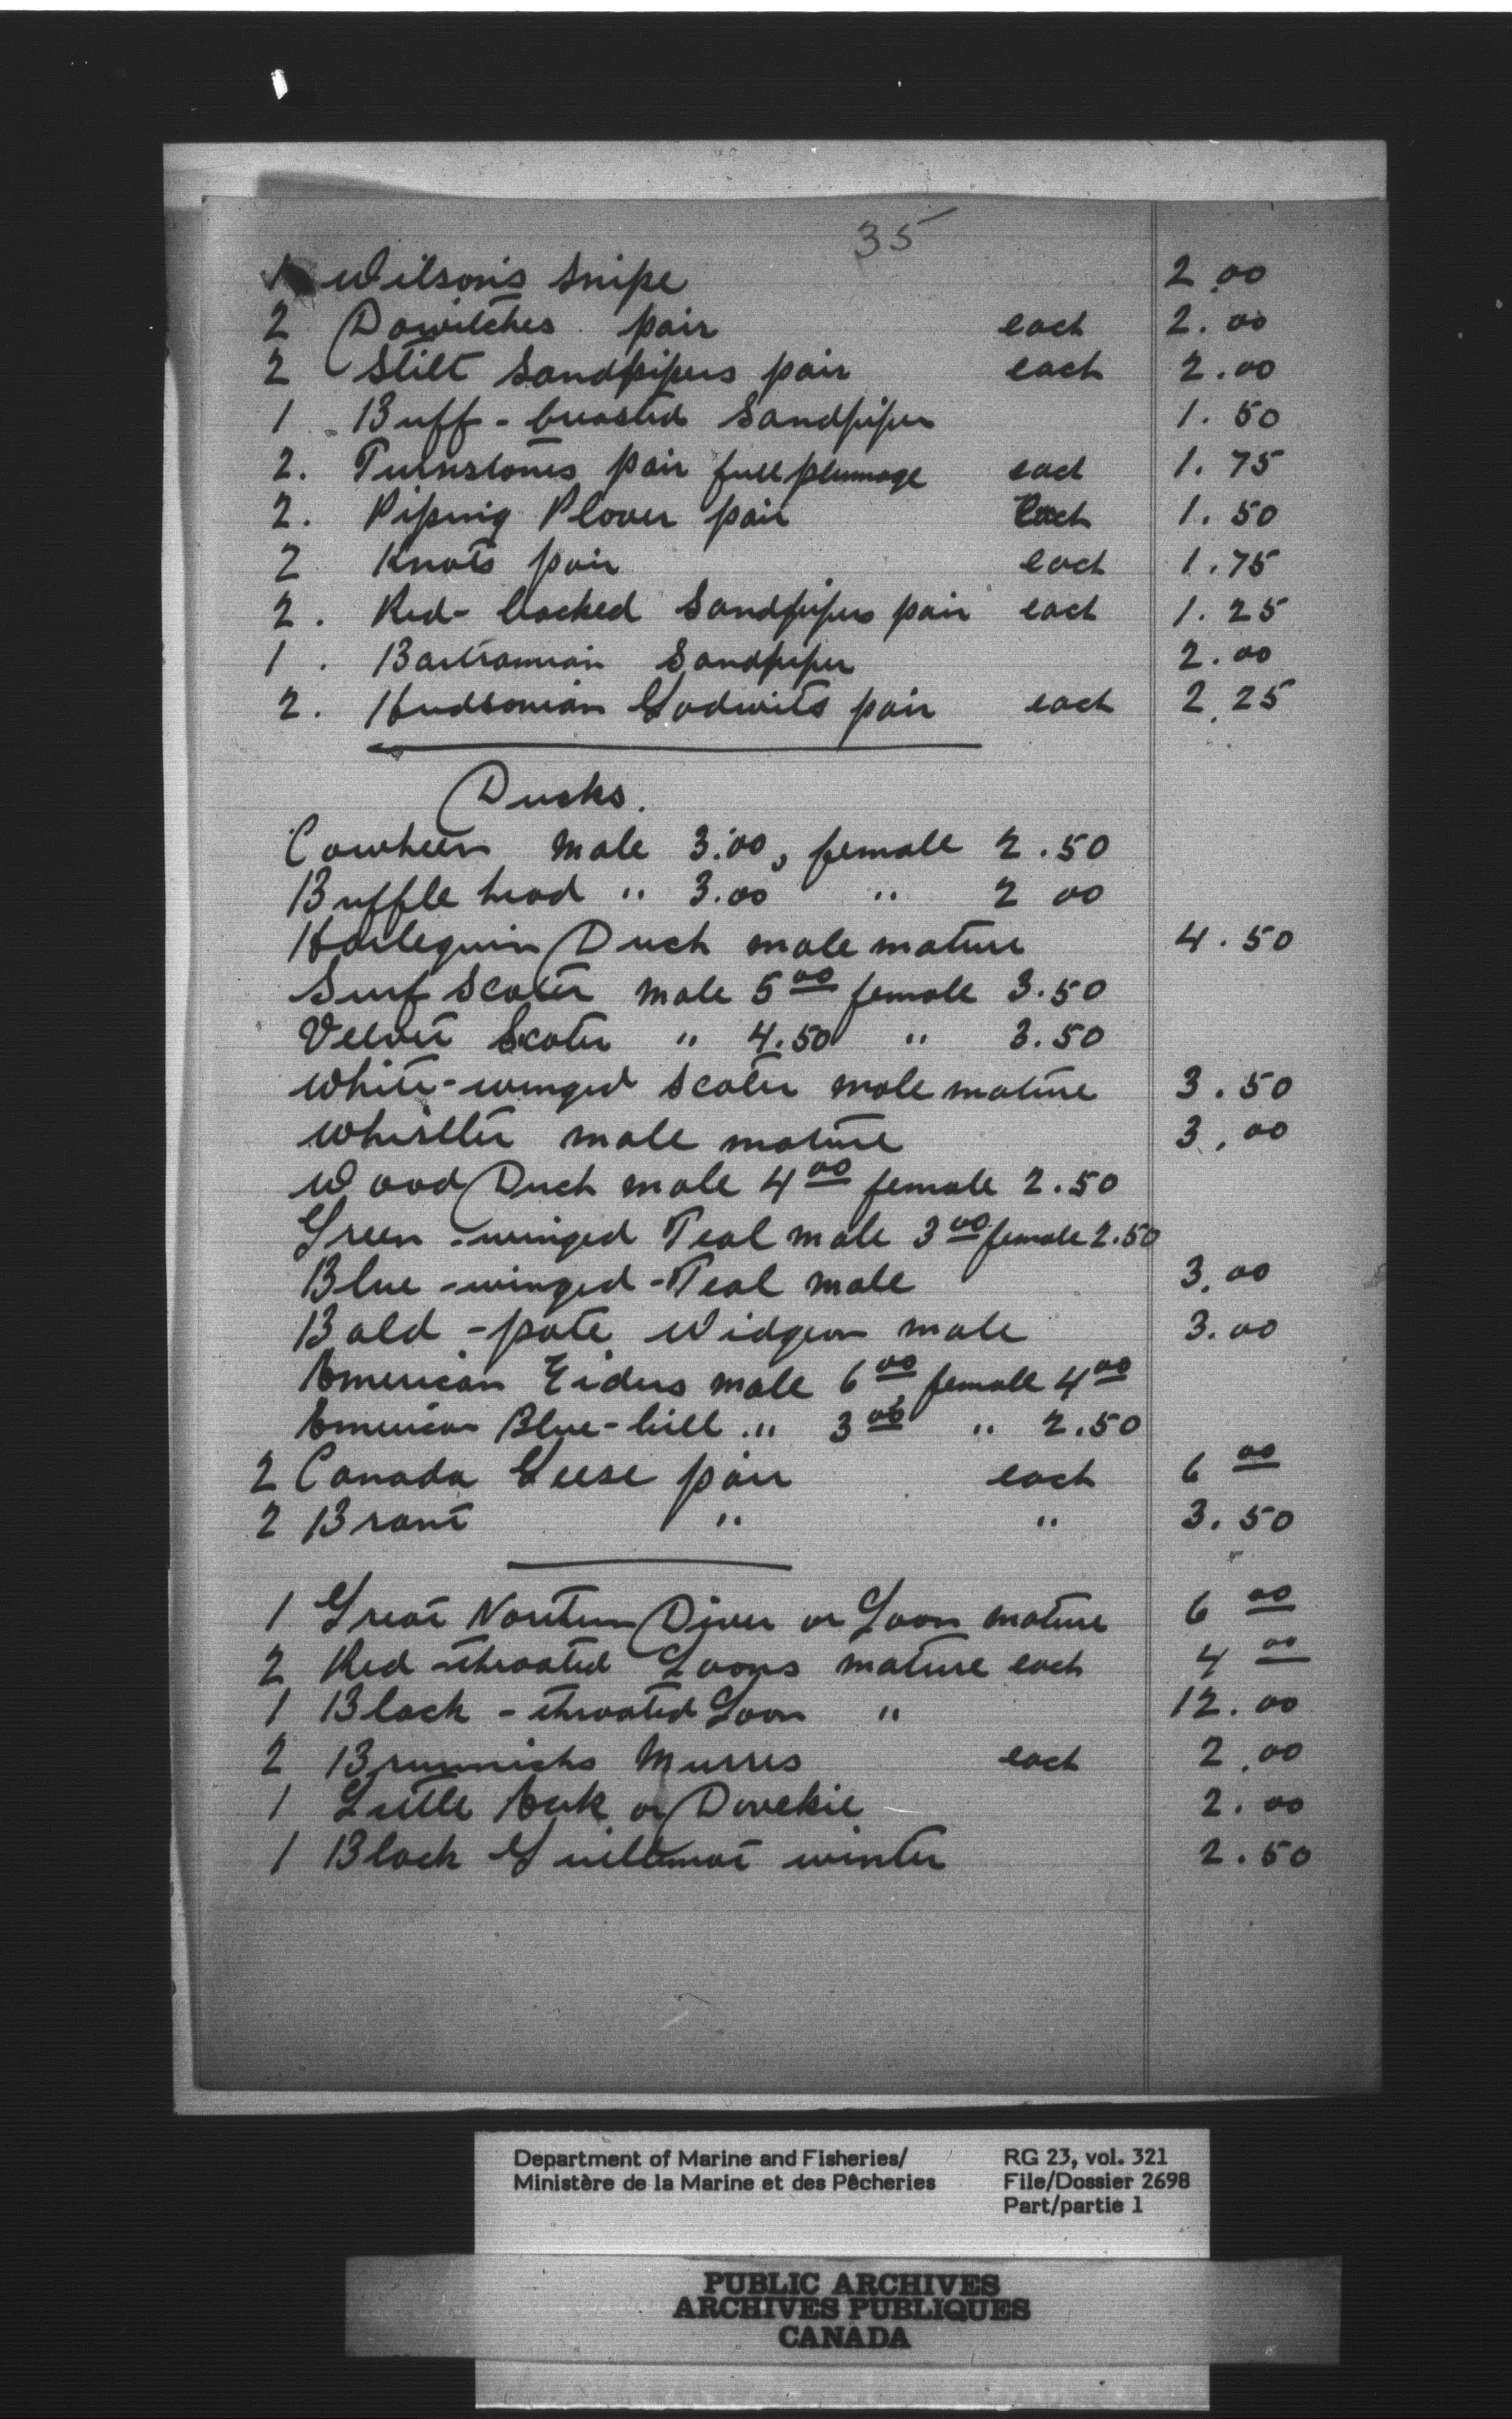 35
1 Wilson's Snipe 2.00
2 Dowitches pair each 2.00
2 Stilt Sandpipers pair each 2.00
1 Buff-breasted Sandpiper 1.50
2. Turnstones pair full plumage each 1.75
2. Piping Plover pair Each 1.50
2 Knots pair each 1.75
2. Red-backed Sandpipers pair each 1.25
1. Bartramian Sandpiper 2.00
2. Hudsonian Godwits pair each 2.25
Ducks.
Cowheen male 3.00, female 2.50
Buffle head " 3.00 " 2 00
Harlequin Duck male mature 4.50
Surf Scoter male 5 00 female 3.50
Velvet Scoter " 4.50 " 3.50
White-winged Scoter male mature 3.50
Whistler male mature 3.00
Wood Duck male 4 00 female 2.50
Green-winged Teal male 3 00 female 2.50
Blue-winged-Teal male 3.00
Bald-pate Widgeon male 3.00
American Eiders male 6 00 female 4 00
American Blue-bill " 3 00 " 2.50
2 Canada Geese pair each 6 00
2 Brant " " 3.50
1 Great Northern Diver or Loon mature 6 00
2 Red-throated Loons mature each 4 00
1 Black-throated Loon " 12.00
2 Brunnichs Murres each 2.00
1 Little Auk or Dovekie 2.00
1 Black Guillemot winter 2.50
Department of Marine and Fisheries/ RG 23, vol. 321
Ministère de la Marine et des Pêcheries File/Dossier 2698
Part/partie 1
PUBLIC ARCHIVES
ARCHIVES PUBLIQUES
CANADA